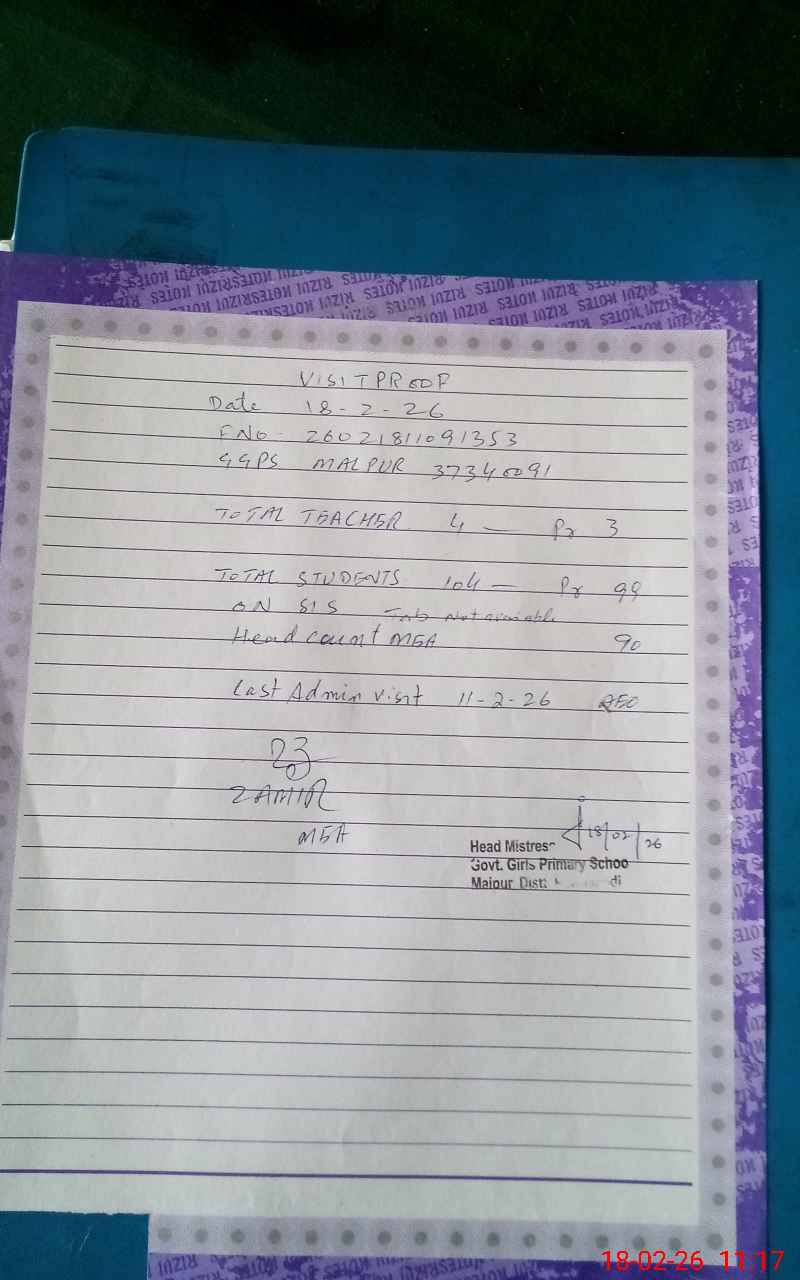 VISIT PROOF
Date 18-2-26
F No- 26021811091353
GGPS MALPUR 37340091
TOTAL TEACHER 4 — Pr 3
TOTAL STUDENTS 104 — Pr 99
ON SIS Tab Not available
Head count MEA 90
Last Admin visit 11-2-26 AEO
ZAMIR
MEA
18/02/26
Head Mistress
Govt. Girls Primary Schoo
Malpur Distt
18-02-26 11:17